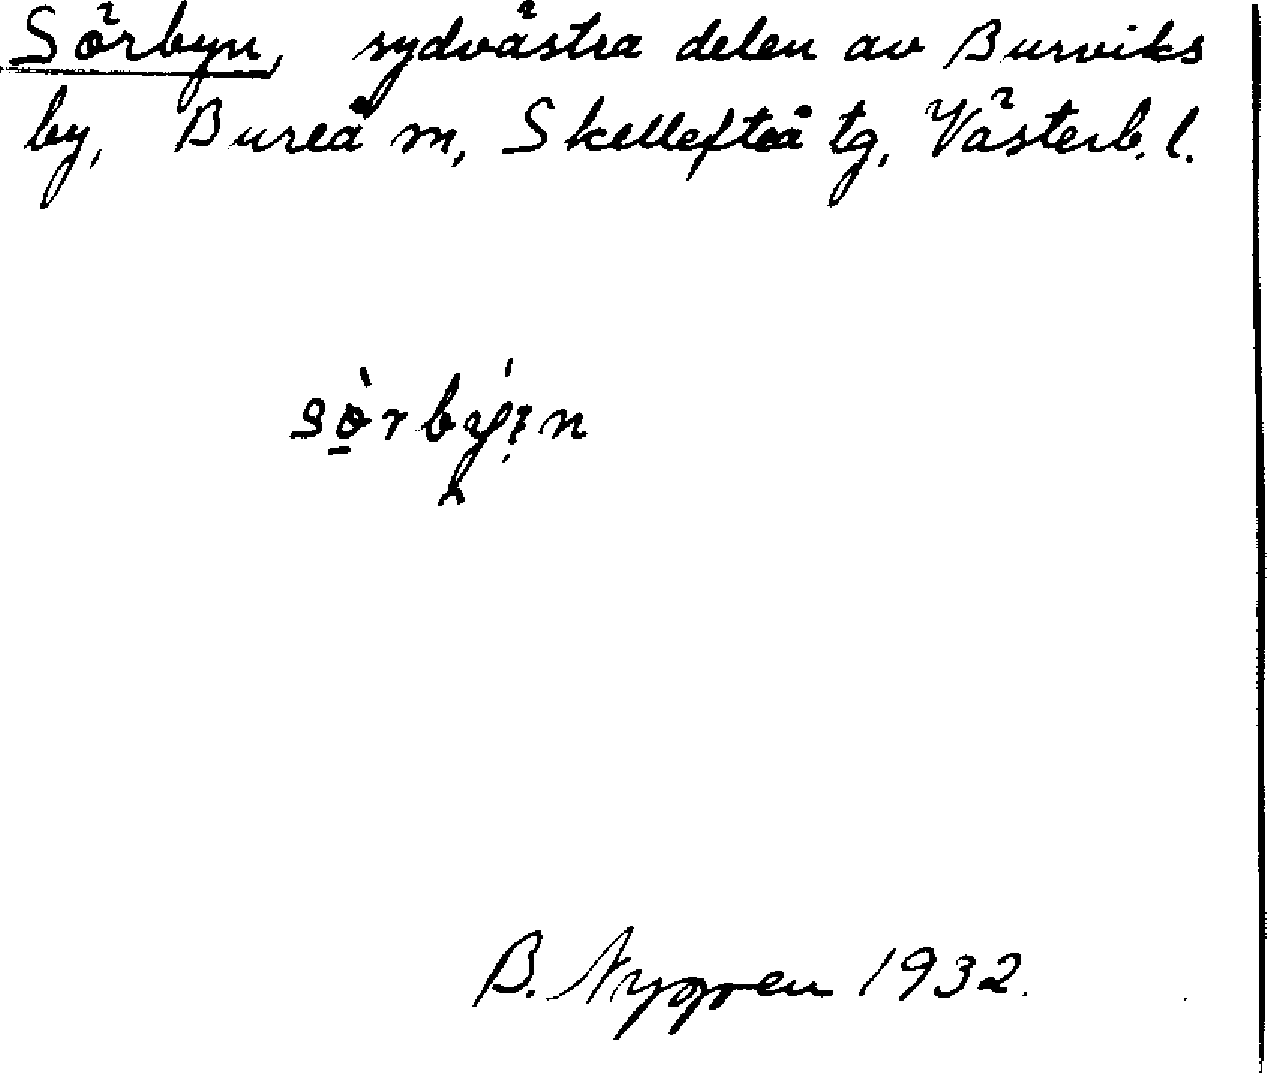 Sörbyn, sydvästra delen av Burviks
by, Bureå sn, Skellefteå tg, Västerb. l.
B. Nygren 1932.